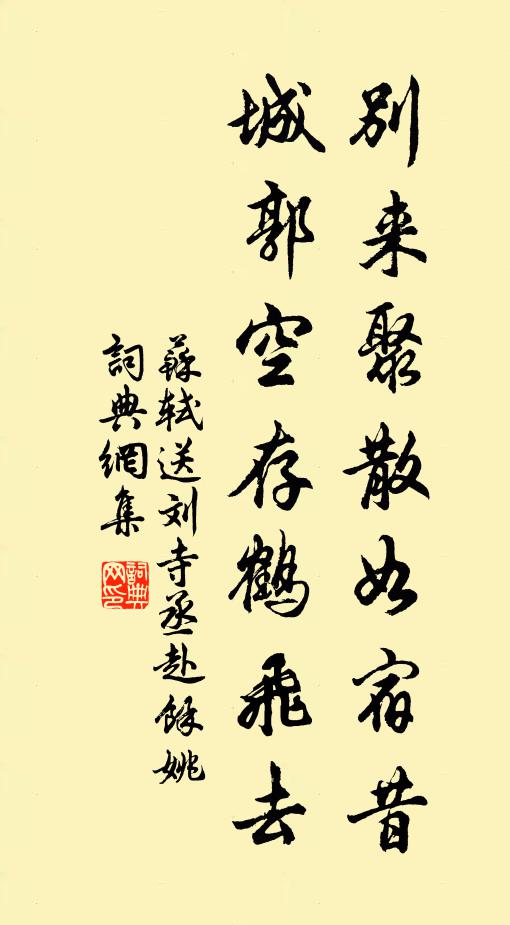 别来聚散如宿昔
城郭空存鹤飞去
蘇軾送刘寺丞赴餘姚
詞典網集
詞典网印